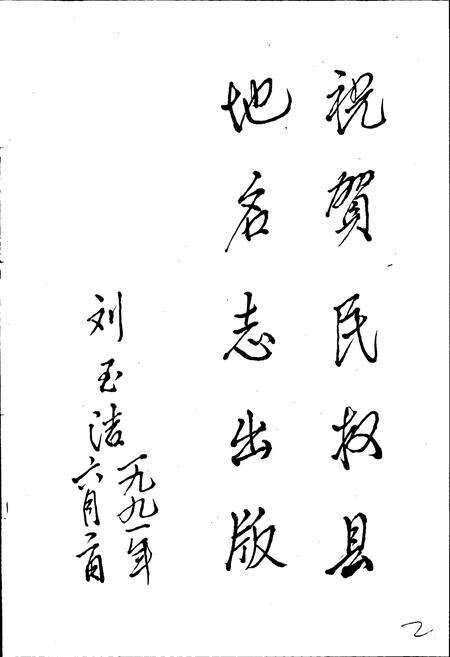 祝贺民权县
地名志出版
刘玉洁
一九九一年
六月二日
2